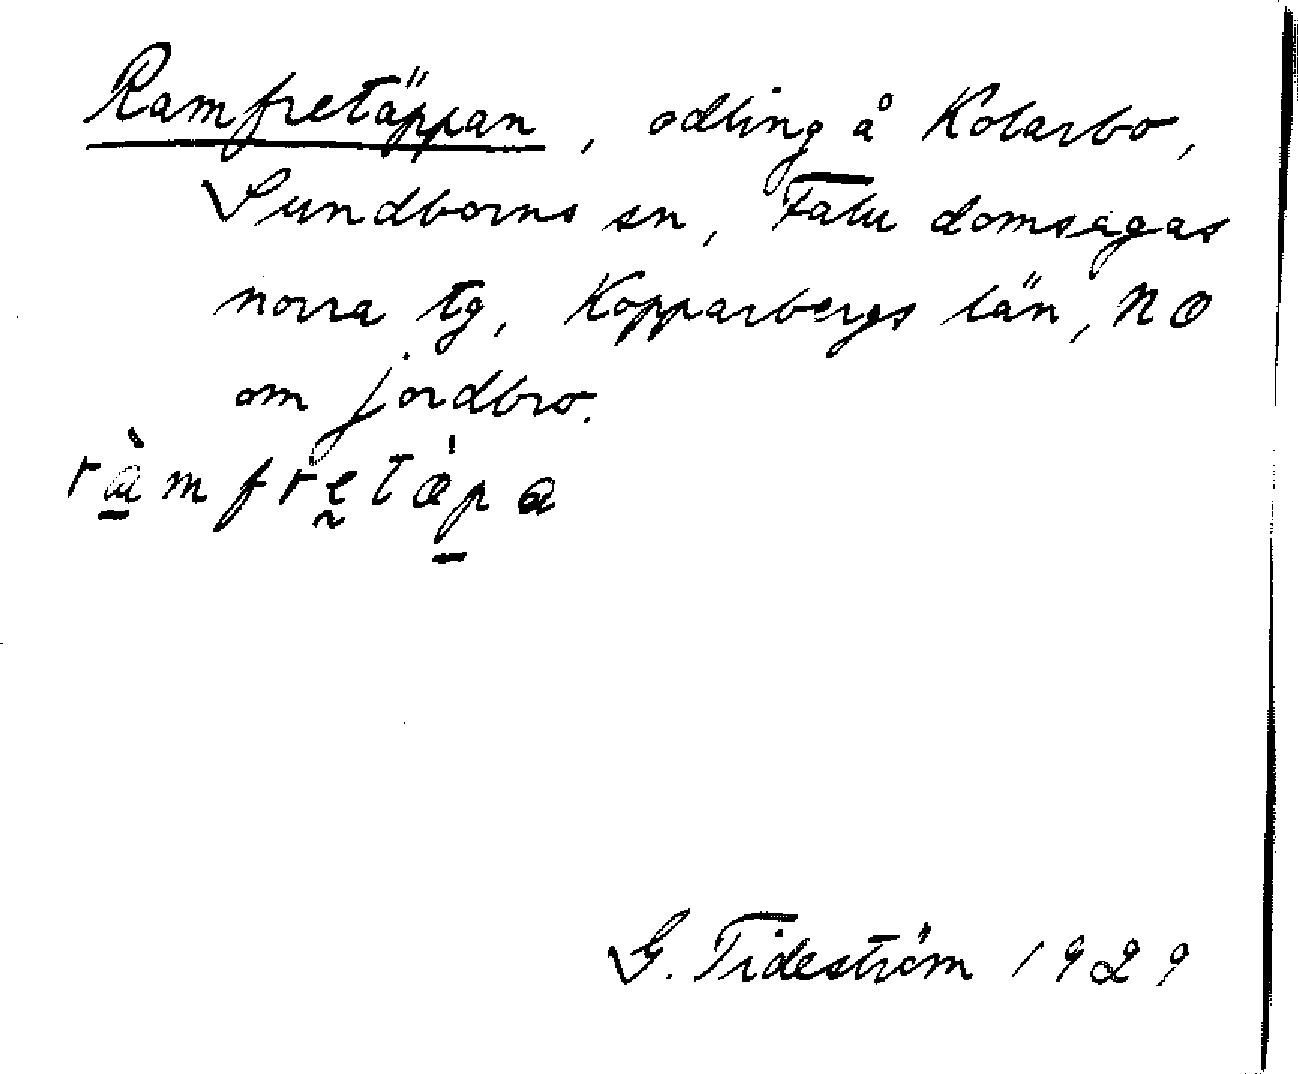 Ramfretäppan, odling å Kolarbo,
Sundborns sn, Falu domsagas
norra tg, Kopparbergs län, NO
om jordbro.
ràmfretæ̀pa
G. Tideström 1929